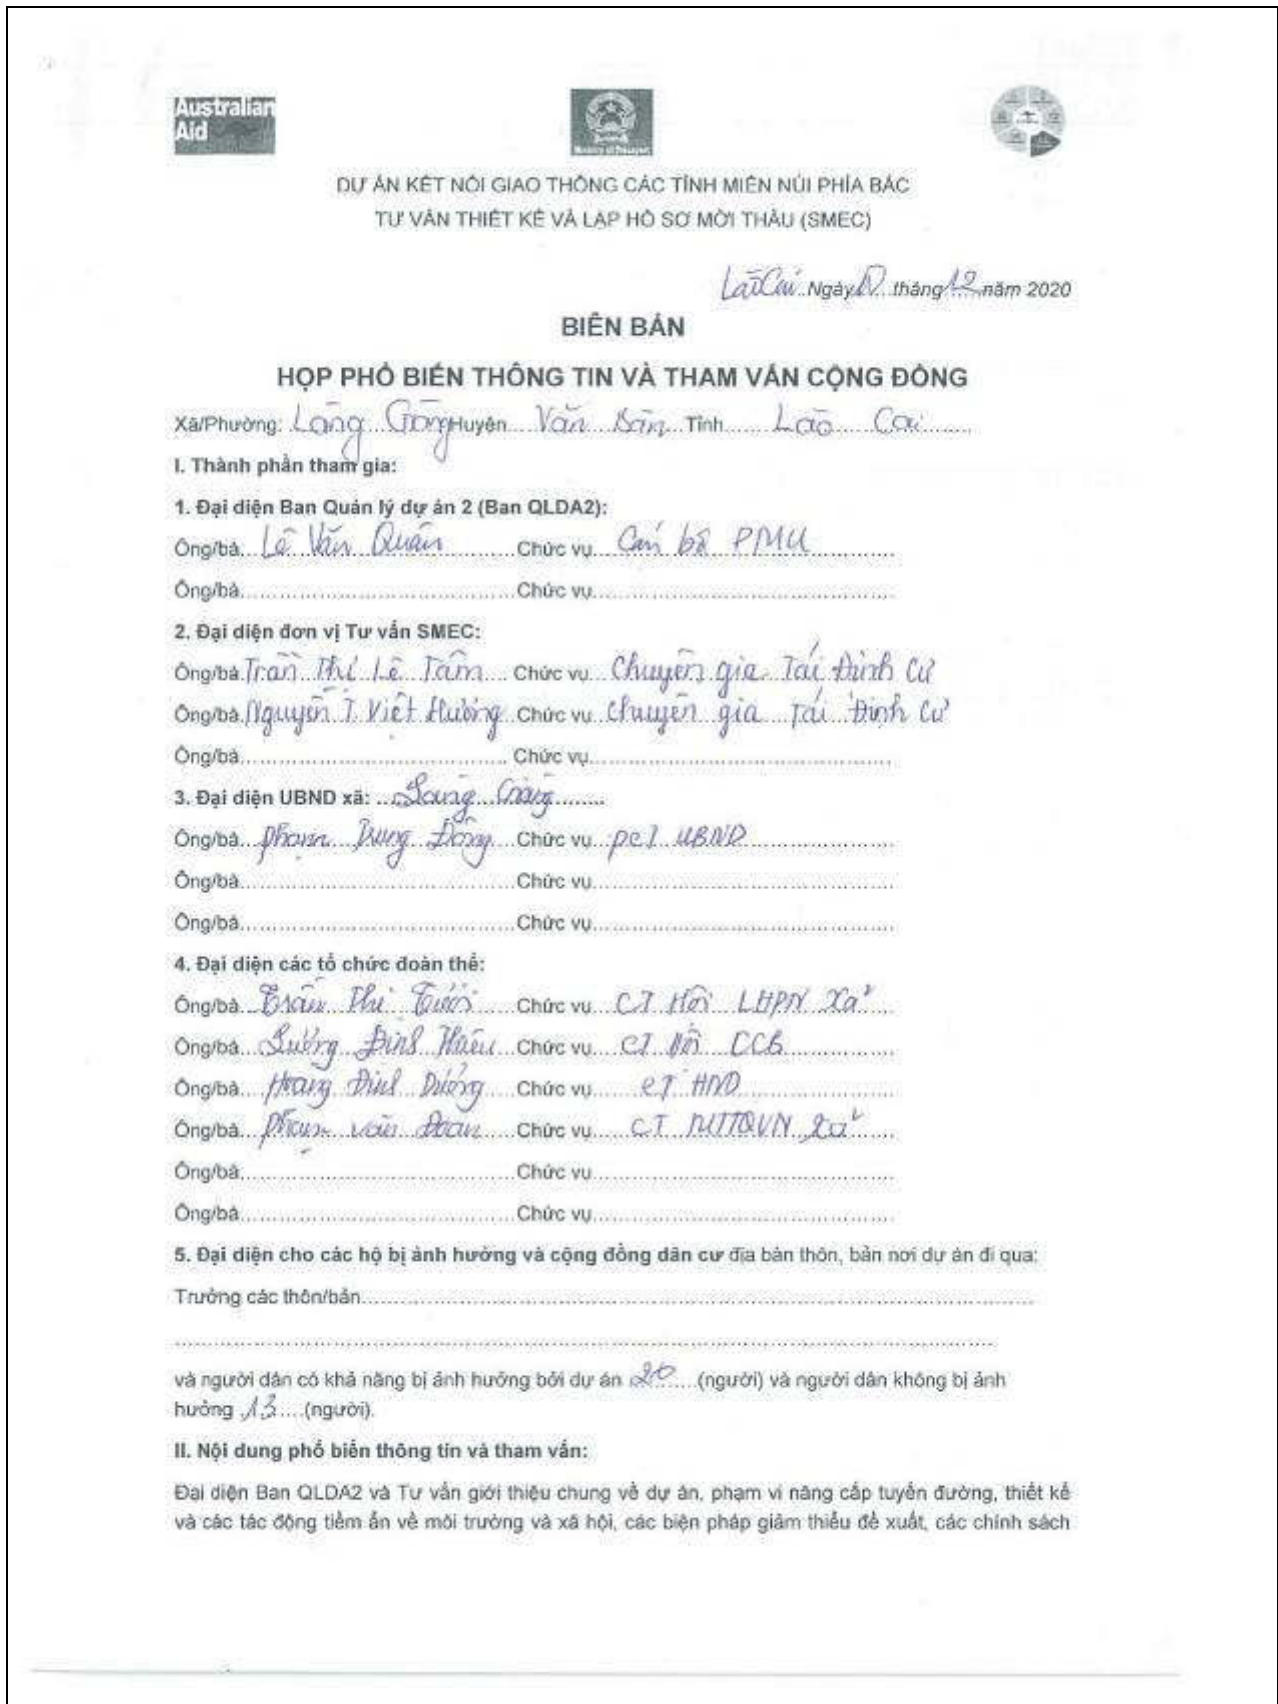 Australian
Aid
Ministry of Transport
DỰ ÁN KẾT NỐI GIAO THÔNG CÁC TỈNH MIỀN NÚI PHÍA BẮC
TƯ VẤN THIẾT KẾ VÀ LẬP HỒ SƠ MỜI THẦU (SMEC)
Lào Cai Ngày ... tháng 12 năm 2020
BIÊN BẢN
HỌP PHỔ BIẾN THÔNG TIN VÀ THAM VẤN CỘNG ĐỒNG
Xã/Phường: Làng Giàng Huyện Văn Bàn Tỉnh Lào Cai
I. Thành phần tham gia:
1. Đại diện Ban Quản lý dự án 2 (Ban QLDA2):
Ông/bà Lê Văn Quân Chức vụ Cán bộ PMU
Ông/bà Chức vụ
2. Đại diện đơn vị Tư vấn SMEC:
Ông/bà Trần Thị Lê Tâm Chức vụ Chuyên gia Tái Định Cư
Ông/bà Nguyễn T. Việt Hường Chức vụ Chuyên gia Tái Định Cư
Ông/bà Chức vụ
3. Đại diện UBND xã: Làng Giàng
Ông/bà Phạm Trung Đông Chức vụ PCT UBND
Ông/bà Chức vụ
Ông/bà Chức vụ
4. Đại diện các tổ chức đoàn thể:
Ông/bà Trần Thị Tưới Chức vụ CT Hội LHPN Xã
Ông/bà Lường Đình Chức vụ CT Hội CCB
Ông/bà Hoàng Đình Dưởng Chức vụ CT HND
Ông/bà Phạm Văn Đoàn Chức vụ CT MTTQVN Xã
Ông/bà Chức vụ
Ông/bà Chức vụ
5. Đại diện cho các hộ bị ảnh hưởng và cộng đồng dân cư địa bàn thôn, bản nơi dự án đi qua:
Trưởng các thôn/bản
và người dân có khả năng bị ảnh hưởng bởi dự án 20 (người) và người dân không bị ảnh
hưởng 13 (người).
II. Nội dung phổ biến thông tin và tham vấn:
Đại diện Ban QLDA2 và Tư vấn giới thiệu chung về dự án, phạm vi nâng cấp tuyến đường, thiết kế
và các tác động tiềm ẩn về môi trường và xã hội, các biện pháp giảm thiểu đề xuất, các chính sách